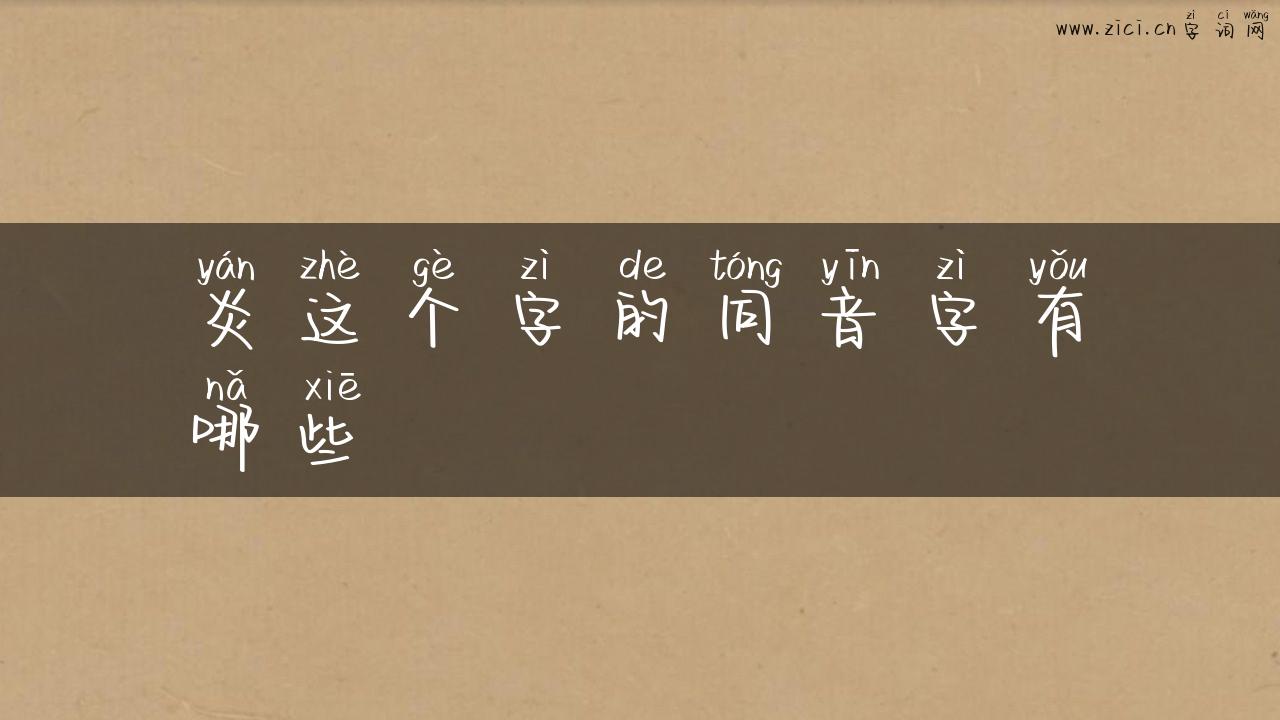 zì cí wǎng
www.zici.cn 字词网
yán zhè gè zì de tóng yīn zì yǒu
炎这个字的同音字有
nǎ xiē
哪些